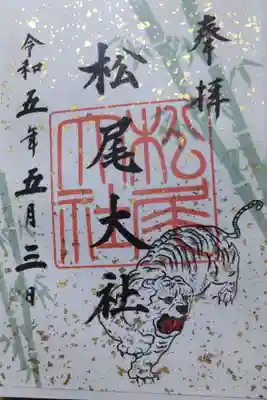 奉拝
松尾大社
令和五年五月三日
松尾大社